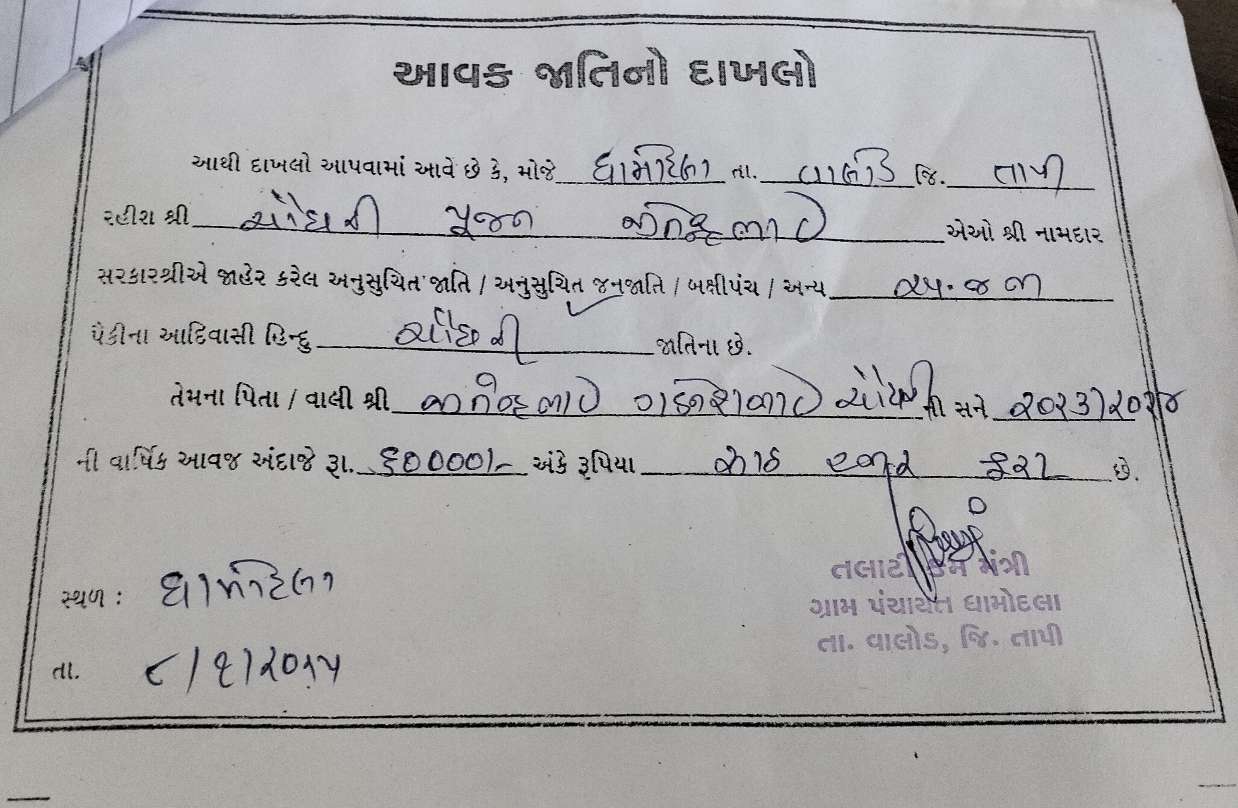 આવક જાતિનો દાખલો
આથી દાખલો આપવામાં આવે છે કે, મોજે ધામોદલા તા. વાલોડ જિ. તાપી
રહીશ શ્રી ચૌધરી પૂજન જીતેન્દ્રભાઈ એઓ શ્રી નામદાર
સરકારશ્રીએ જાહેર કરેલ અનુસુચિત જાતિ / અનુસુચિત જનજાતિ / બક્ષીપંચ / અન્ય અ.જ.જા
પૈકીના આદિવાસી હિન્દુ ચૌધરી જાતિના છે.
તેમના પિતા / વાલી શ્રી જીતેન્દ્રભાઈ ચૌધરી ની સને ૨૦૨૩/૨૦૨૪
ની વાર્ષિક આવજ અંદાજે રૂા. ૬૦૦૦૦/- અંકે રૂપિયા સાઠ હજાર પુરા છે.
તલાટી કમ મંત્રી
સ્થળ : ધામોદલા
ગ્રામ પંચાયત ધામોદલા
તા. વાલોડ, જિ. તાપી
તા. ૮/૧/૨૦૨૫